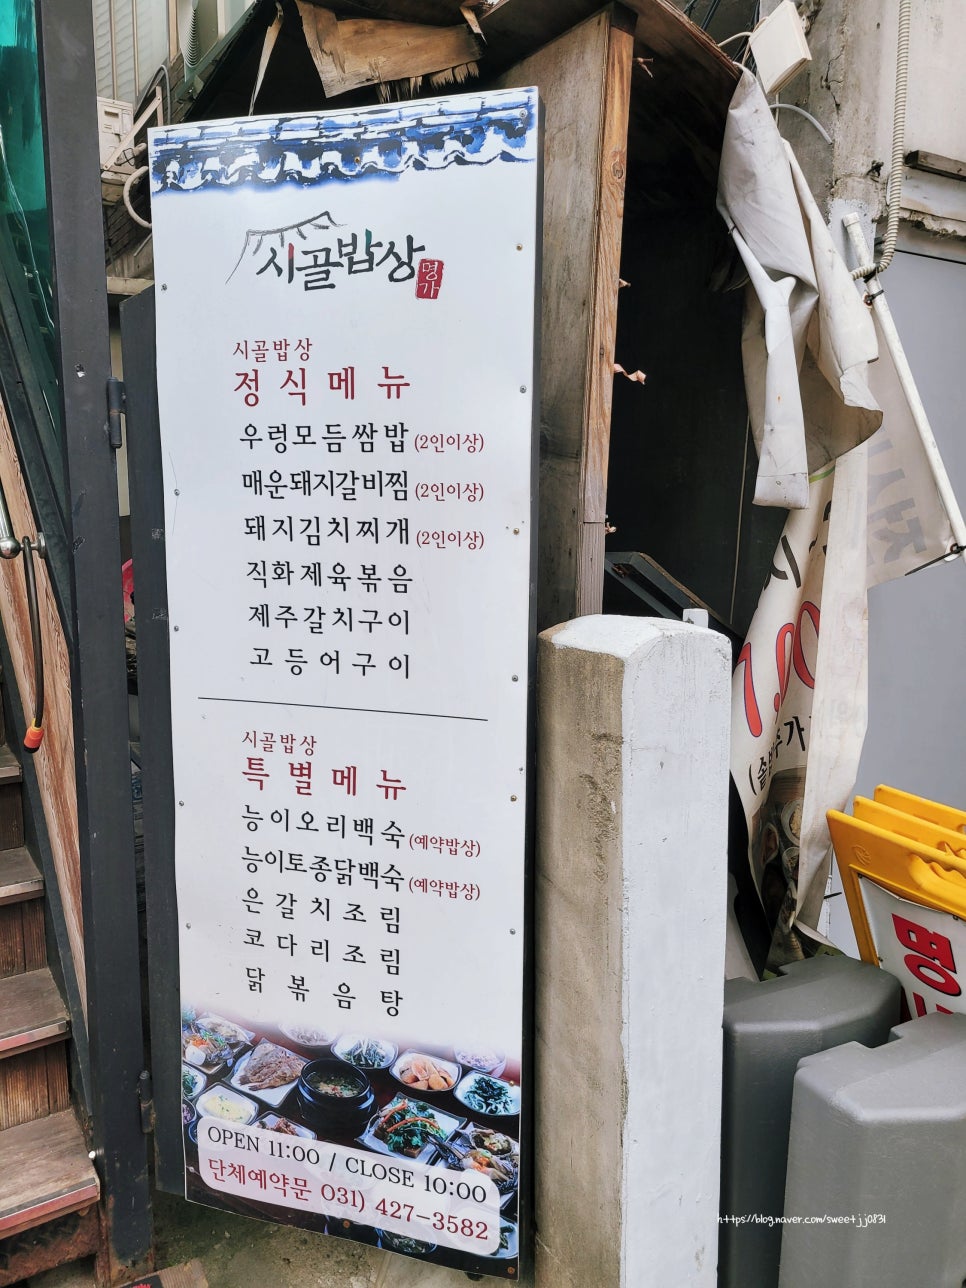 시골밥상
명가
시골밥상
정식메뉴
우렁모듬쌈밥 (2인이상)
매운돼지갈비찜 (2인이상)
돼지김치찌개 (2인이상)
직화제육볶음
제주갈치구이
고등어구이
시골밥상
특별메뉴
능이오리백숙 (예약밥상)
능이토종닭백숙 (예약밥상)
은갈치조림
코다리조림
닭볶음탕
OPEN 11:00 / CLOSE 10:00
단체예약문 031) 427-3582
https://blog.naver.com/sweetjj0831